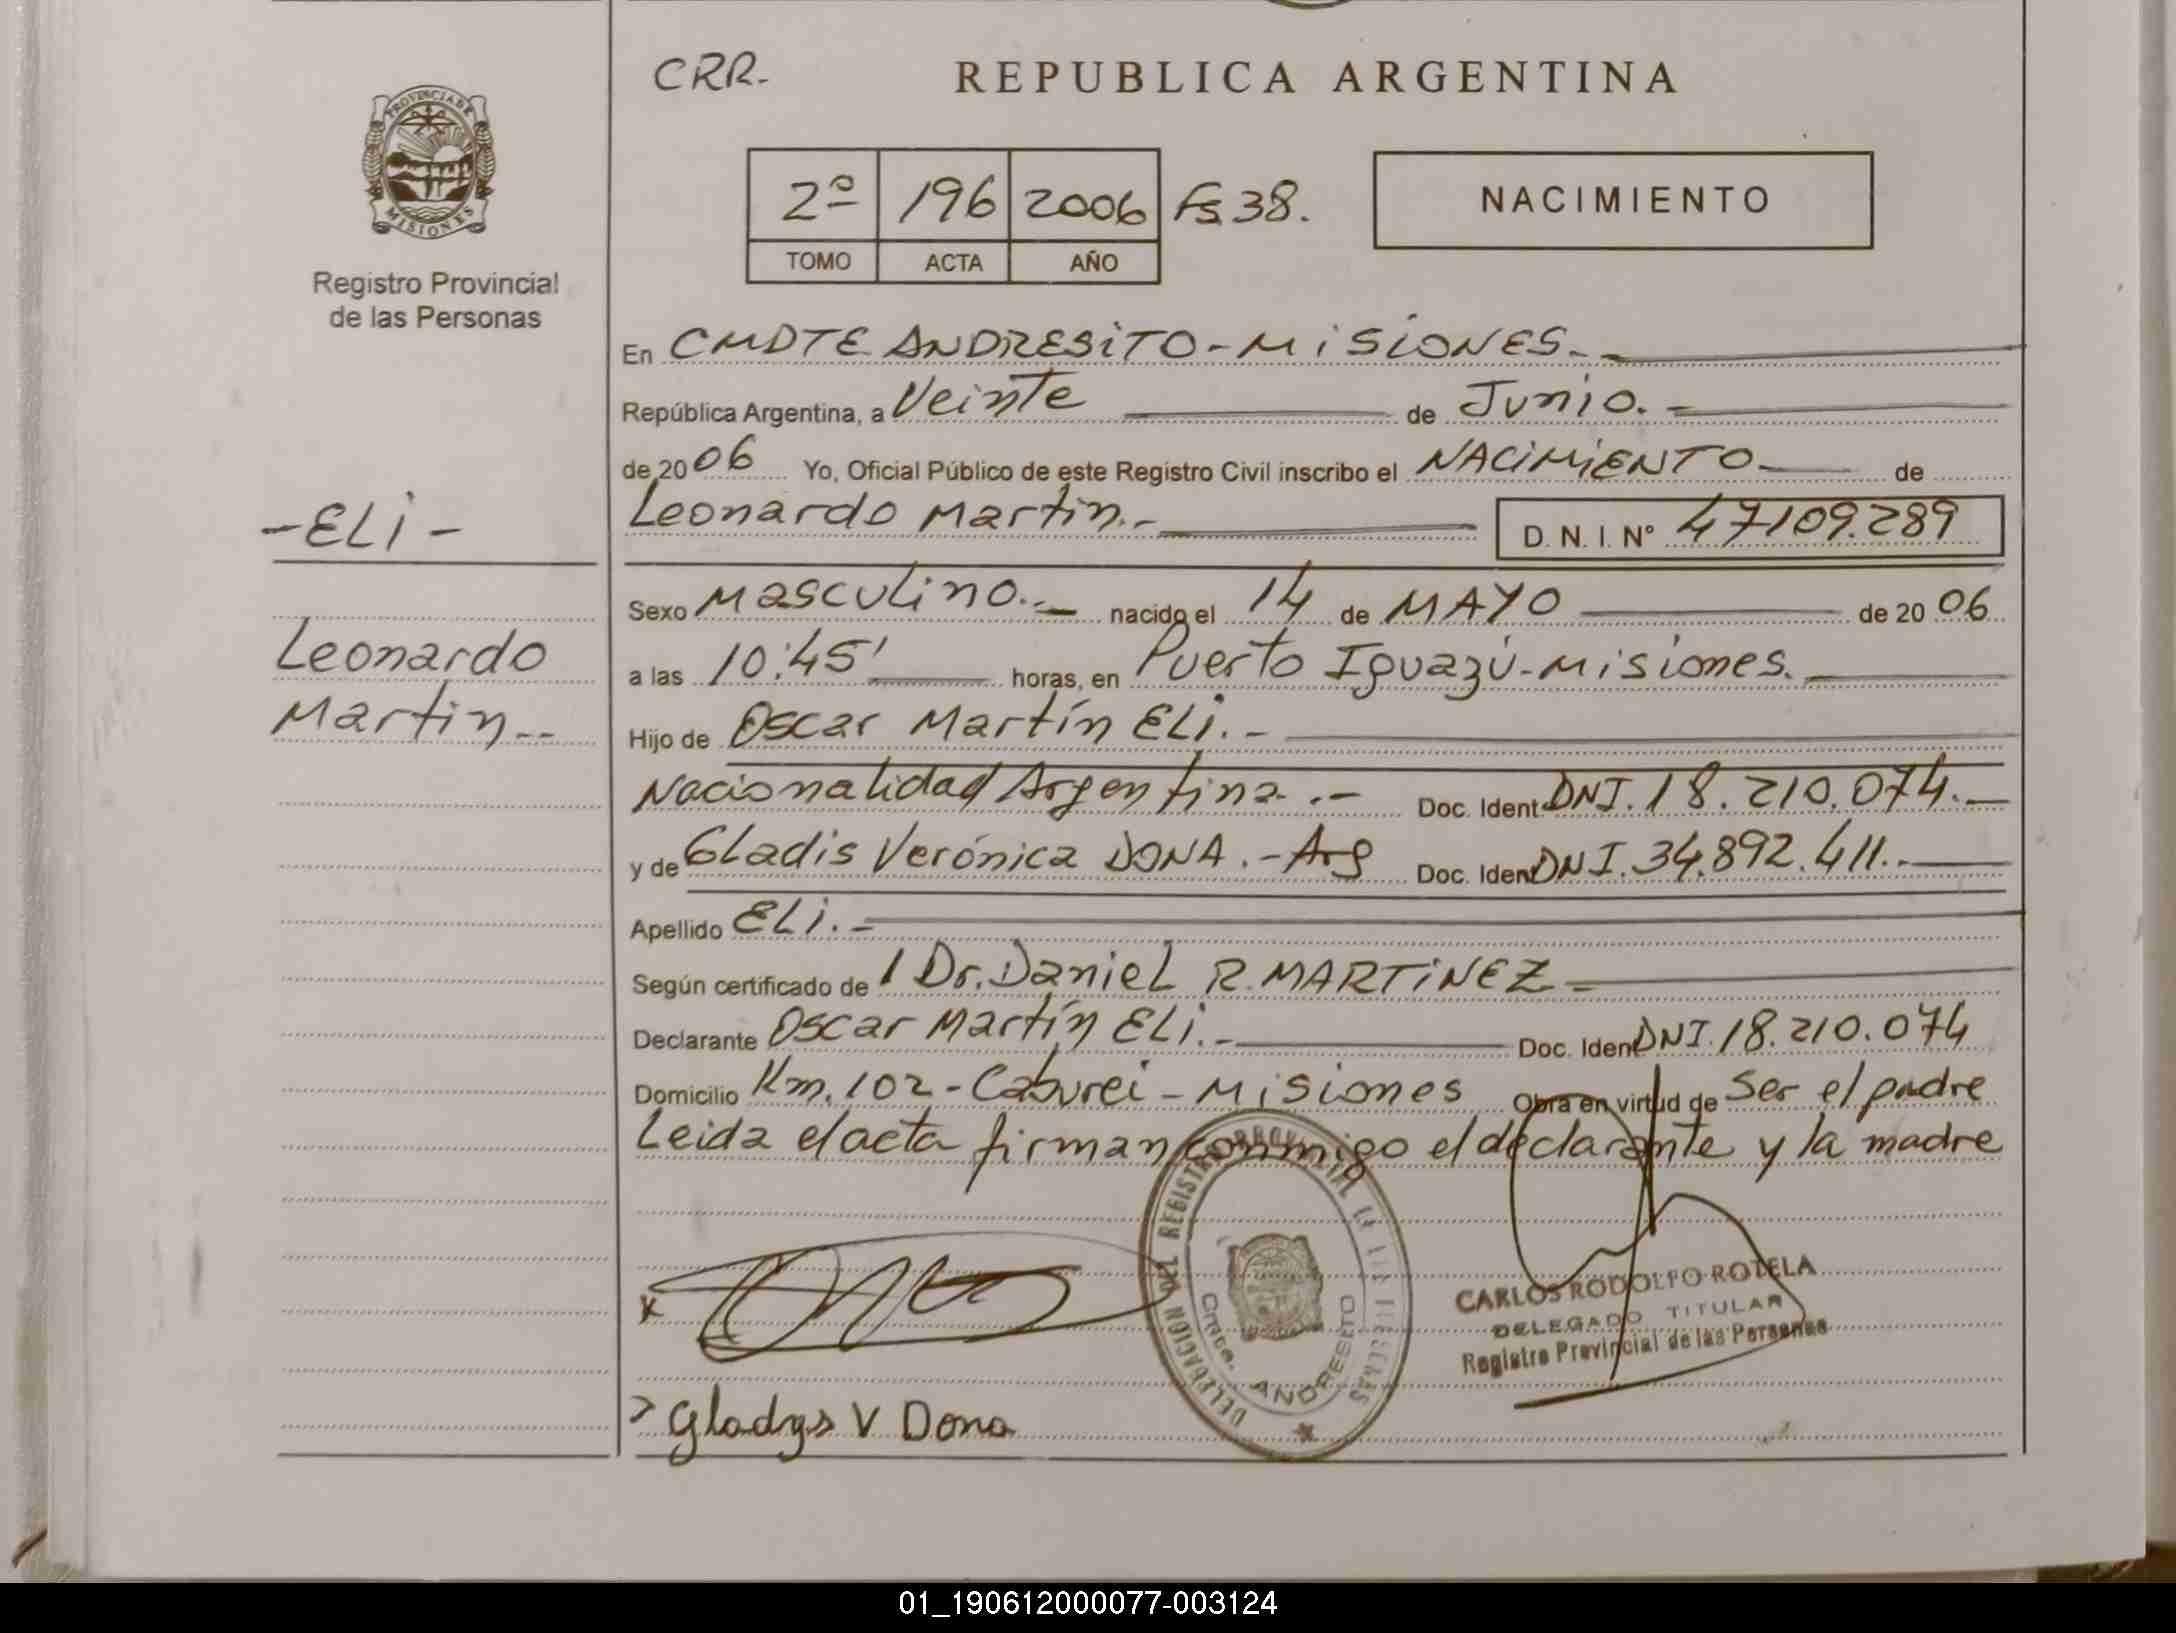 CRR.
REPUBLICA ARGENTINA
PROVINCIA DE
MISIONES
Registro Provincial
de las Personas
2º 196 2006 Fs 38.
TOMO ACTA AÑO
NACIMIENTO
En CMDTE ANDRESITO - MISIONES. -
República Argentina, a Veinte de Junio. -
de 2006 Yo, Oficial Público de este Registro Civil inscribo el NACIMIENTO de
Leonardo Martin. - D. N. I. Nº 47109.289
- ELI -
Leonardo
Martin--
Sexo Masculino. - nacido el 14 de MAYO de 20 06
a las 10:45' horas, en Puerto Iguazú - Misiones.
Hijo de Oscar Martín ELI. -
Nacionalidad Argentina. - Doc. Ident DNI. 18.210.074. -
y de Gladis Verónica DONA. - Arg Doc. Ident DNI. 34.892.411. -
Apellido ELI. -
Según certificado de / Dr. Daniel R. MARTINEZ -
Declarante Oscar Martín ELI. - Doc. Ident DNI. 18.210.074
Domicilio Km. 102 - Caburei - Misiones Obra en virtud de Ser el padre
Leida el acta firman conmigo el declarante y la madre
DELEGACION DEL REGISTRO PROVINCIAL DE LAS PERSONAS
Cmte. ANDRESITO
CARLOS RODOLFO ROTELA
DELEGADO TITULAR
Registro Provincial de las Personas
x
> Gladys V Dona
01_190612000077-003124